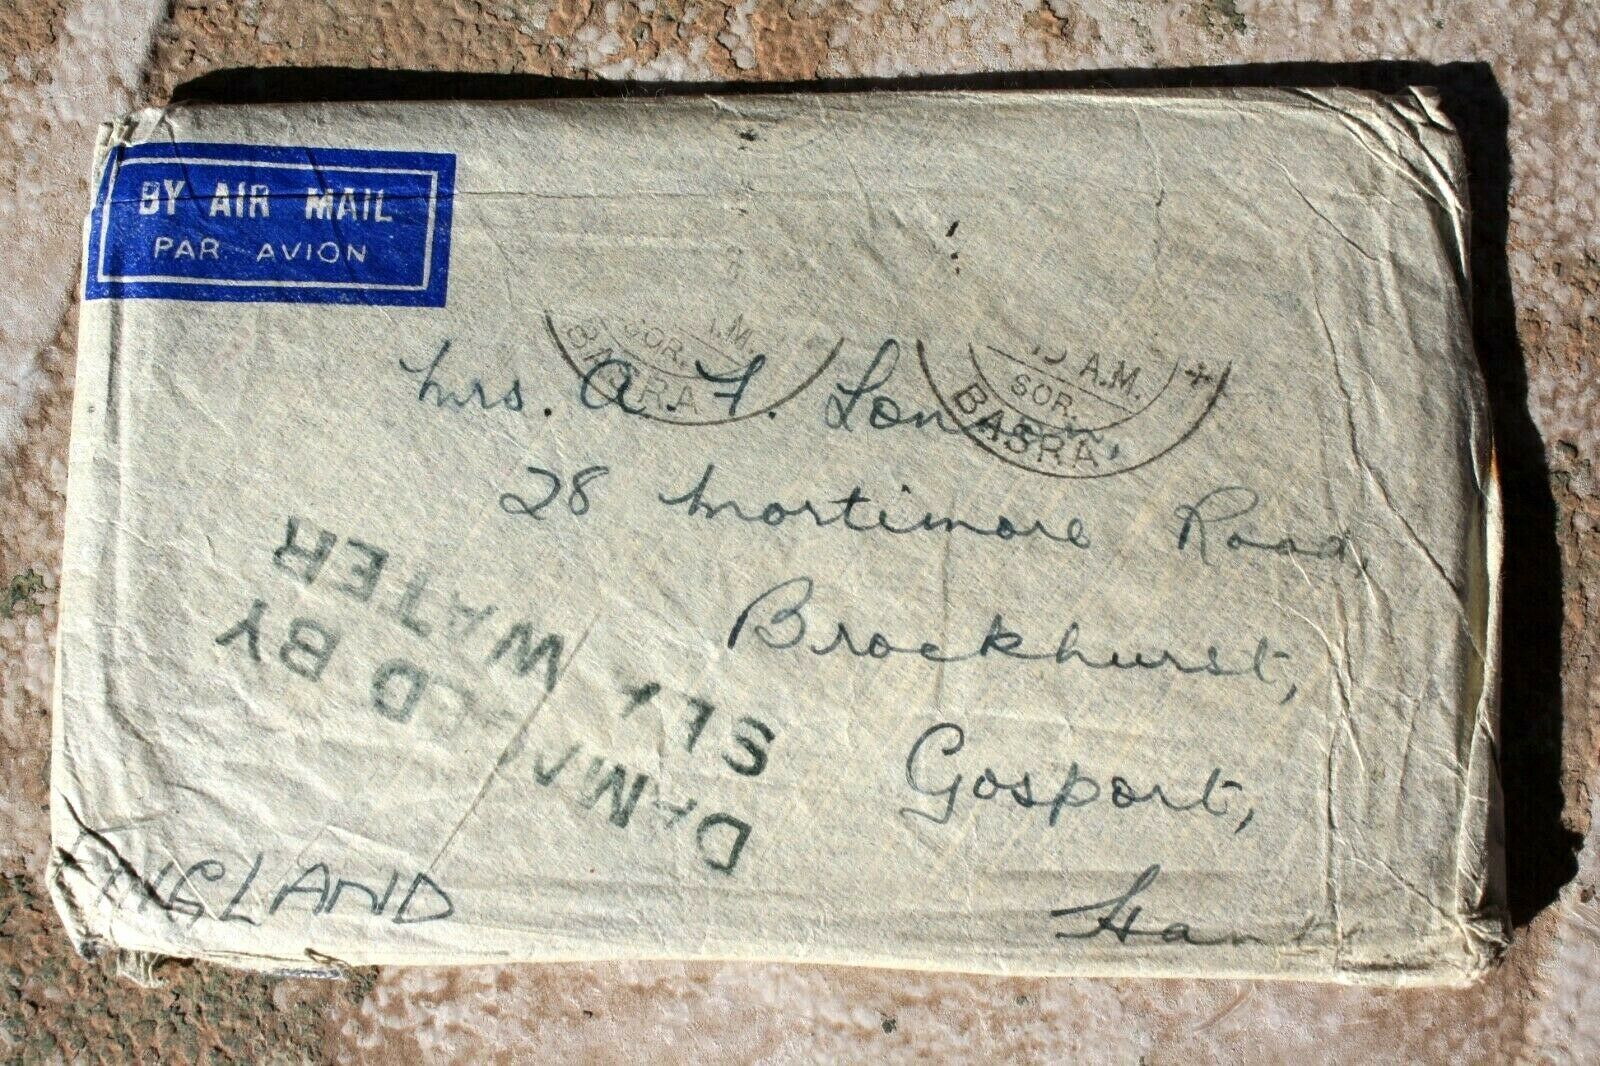 BY AIR MAIL
PAR AVION
A.M.
SOR.
BASRA
A.M.
SOR.
BASRA
Mrs. A. F.
28 Mortimore Road,
Brockhurst,
Gosport,
Hants
ENGLAND
DAMAGED BY
SEA WATER